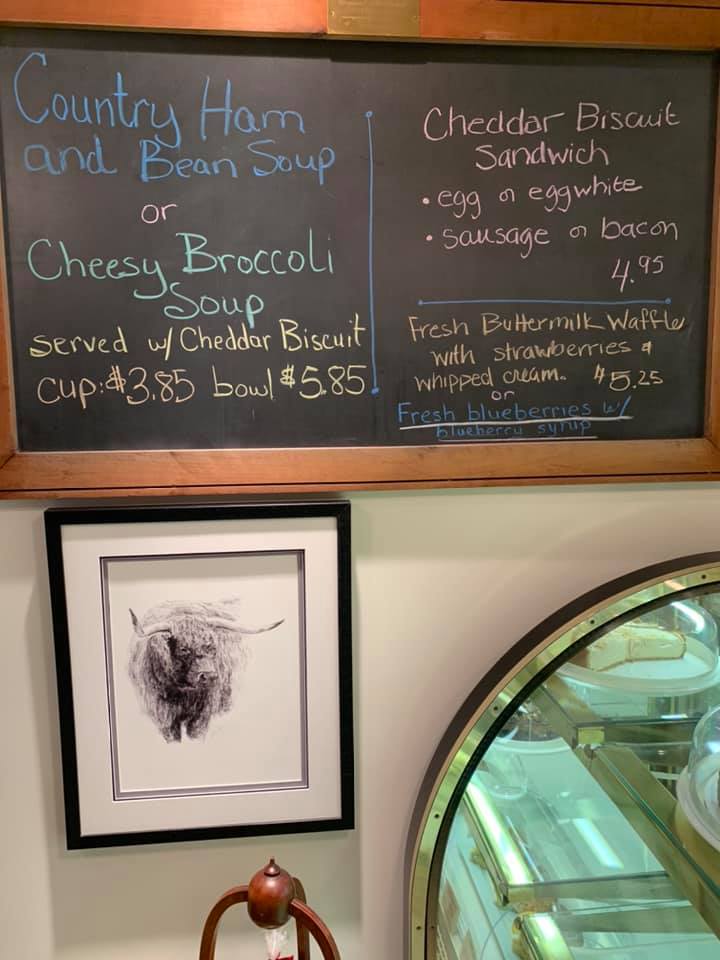 Country Ham
and Bean Soup
or
Cheesy Broccoli
Soup
served w/ Cheddar Biscuit
cup: $3.85 bowl $5.85
Cheddar Biscuit
Sandwich
• egg or eggwhite
• sausage or bacon
4.95
Fresh Buttermilk Waffle
with strawberries &
whipped cream. $5.25
or
Fresh blueberries w/
blueberry syrup